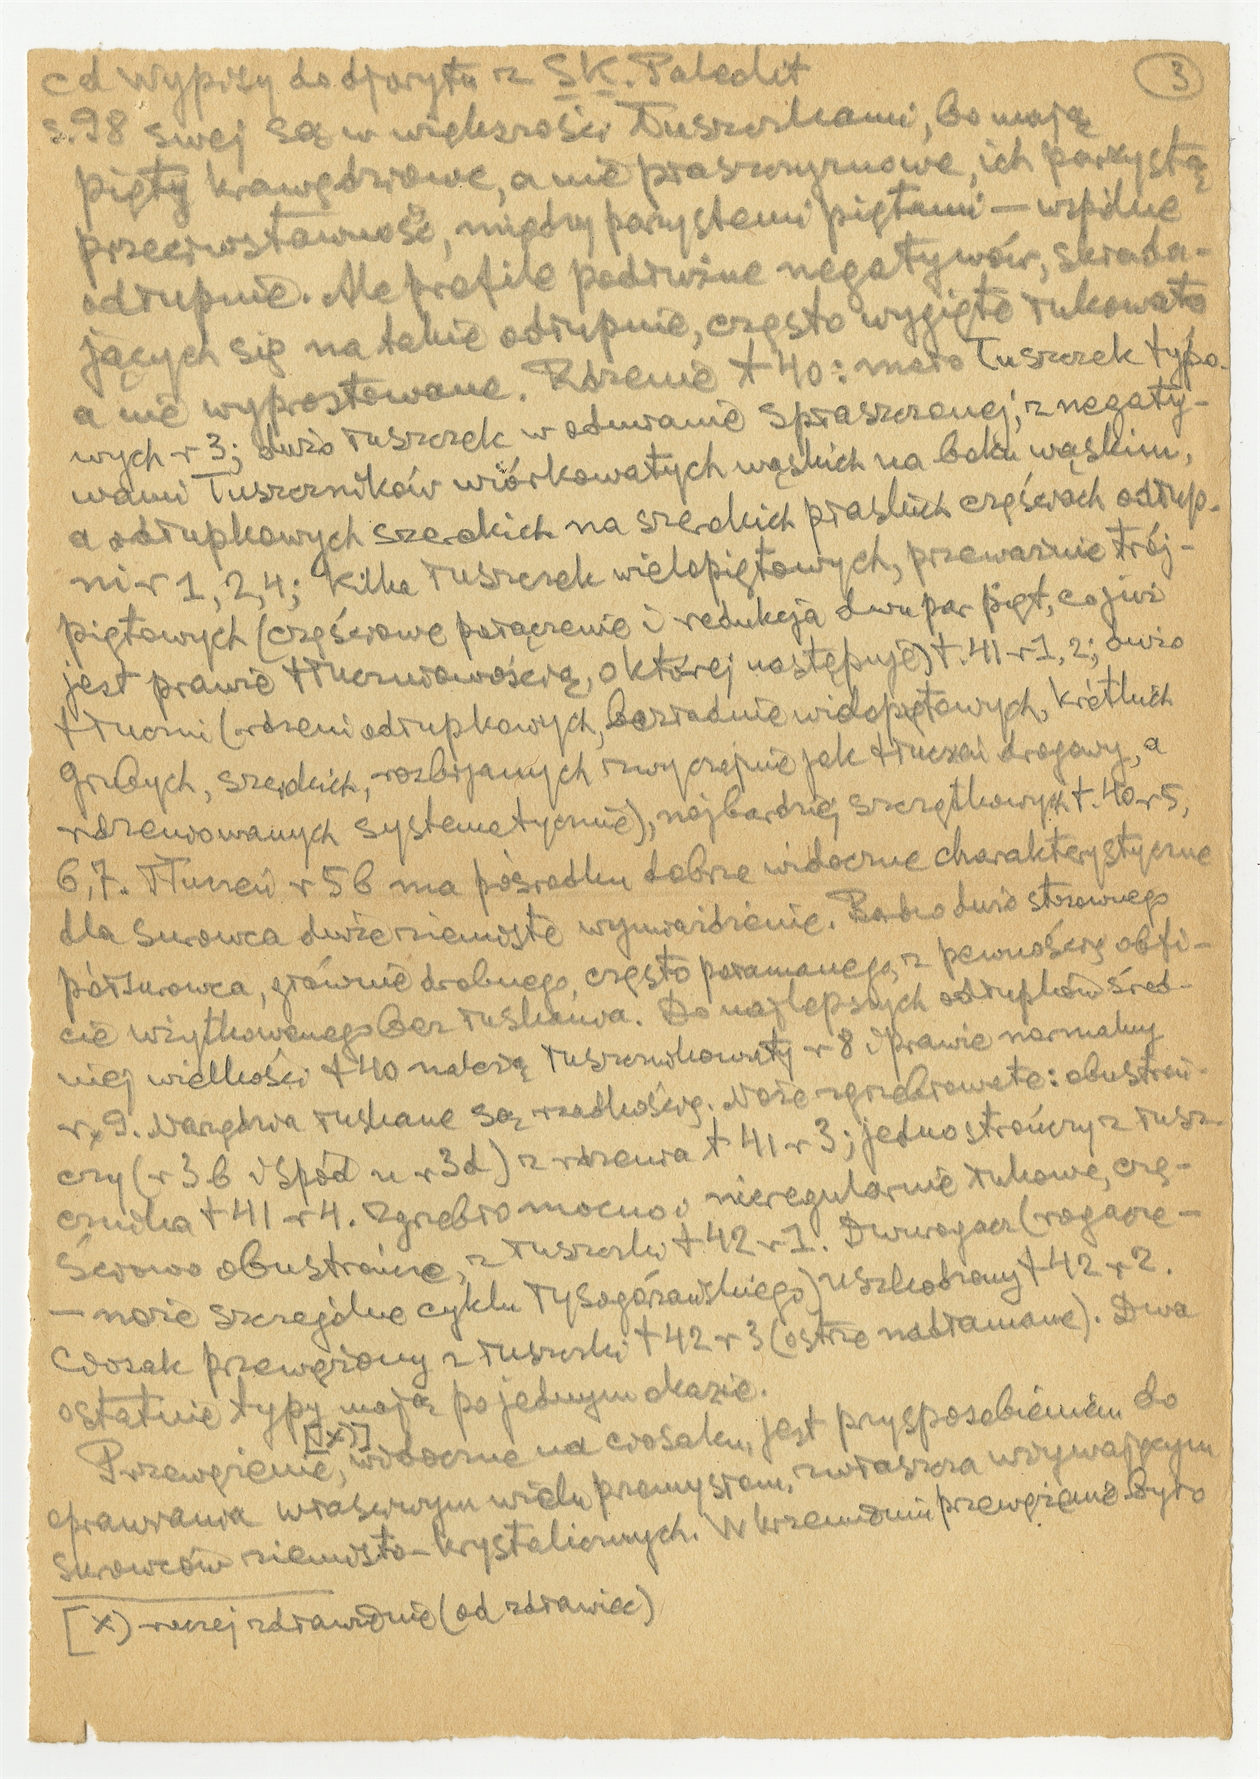 cd Wypisy do dforytu z SK. Paleolit
3
s.98 swej są w większości Łuszczkami, bo mają
pięty krawędziowe, a nie płaszczyznowe, ich parzystą
przeciwstawność, między parzystemi piętami – wspólne
odłupnie. Ale profile podłużne negatywów, składa-
jących się na takie odłupnie, często wygięte łukowato
a nie wyprostowane. Rdzenie t 40: mało Łuszczek typo-
wych r 3; dużo łuszczek w odmianie spłaszczonej, z negaty-
wami Łuszczników wiórkowatych wąskich na boku wąskim,
a odłupkowych szerokich na szerokich płaskich częściach odłup-
ni r 1, 2, 4; kilka łuszczek wielopiętowych, przeważnie trój-
piętowych (częściowe połączenie i redukcja dwu par pięt, co już
jest prawie tłuczniowością, o której następuje) t. 41 r 1, 2; dużo
tłuczni (rdzeni odłupkowych, bezładnie wielopiętowych, krótkich
grubych, szerokich, rozbijanych zwyczajnie jak tłuczeń drogowy, a
rdzeniowanych systematycznie), najbardziej szczątkowych t. 40 r 5,
6, 7. Tłuczeń r 5b ma pośrodku dobrze widoczne charakterystyczne
dla surowca duże ziemiste wymoździenie. Bardzo dużo stosownego
półsurowca, głównie drobnego, często połamanego, z pewnością obfi-
cie użytkowanego bez łuskania. Do najlepszych odłupków śred-
niej wielkości t 40 należą łuszcznikowaty r 8 i prawie normalny
r 9. Narzędzia łuskane są rzadkością. Noże zgrzebłowate: obustron-
czy (r 3b i spód u r 3d) z rdzenia t 41 r 3; jednostrończy z łusz-
cznika t 41 r 4. Zgrzebło mocno i nieregularnie łukowe, czę-
ściowo obustronne, z łuszczki t 42 r 1. Dwurogacz (rogacze –
– noże szczególne cyklu Łysogórzańskiego) uszkodzony t 42 r 2.
Ciosak przewężony z łuszczki t 42 r 3 (ostrze nadłamane). Dwa
ostatnie typy mają po jednym okazie.
[x)]
Przewężenie, widoczne na ciosaku, jest przysposobieniem do
oprawiania właściwym wielu przemysłom, zwłaszcza używającym
surowców ziemisto-krystalicznych. W krzemieniu przewężenie było
[x) raczej zdławienie (od zdławić)